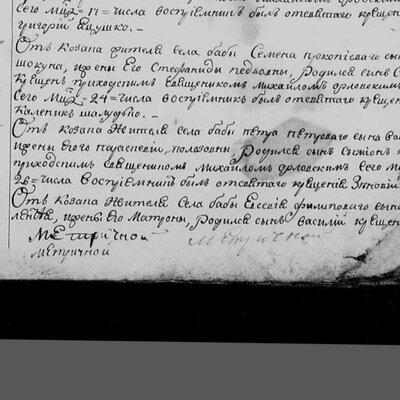 сего мца 17 = числа воспріемникъ былъ отсвятаго крещен
григорій
Отъ козака жителя села бабы Семена прокопіева сы
шокуна, ижены Его Стефаниды, Родился сынъ
крещенъ приходскимъ священикомъ михайломъ орловским
Сего мца = 24 = числа воспріемникъ былъ отсвятаго креще
каленикъ
Отъ козака жителя села бабы петра петрового сына
ижены Его параскевіи, Родился сынъ Симіонъ
приходскимъ священикомъ михайломъ орловскимъ сего м
28 = числа воспріемникъ былъ отсвятаго крещенія Зіновій
Отъ козака жителя села бабы Евсевія филипового сына
ижены Его Матроны, Родился сынъ василій креще
Метричной метричной
метричной